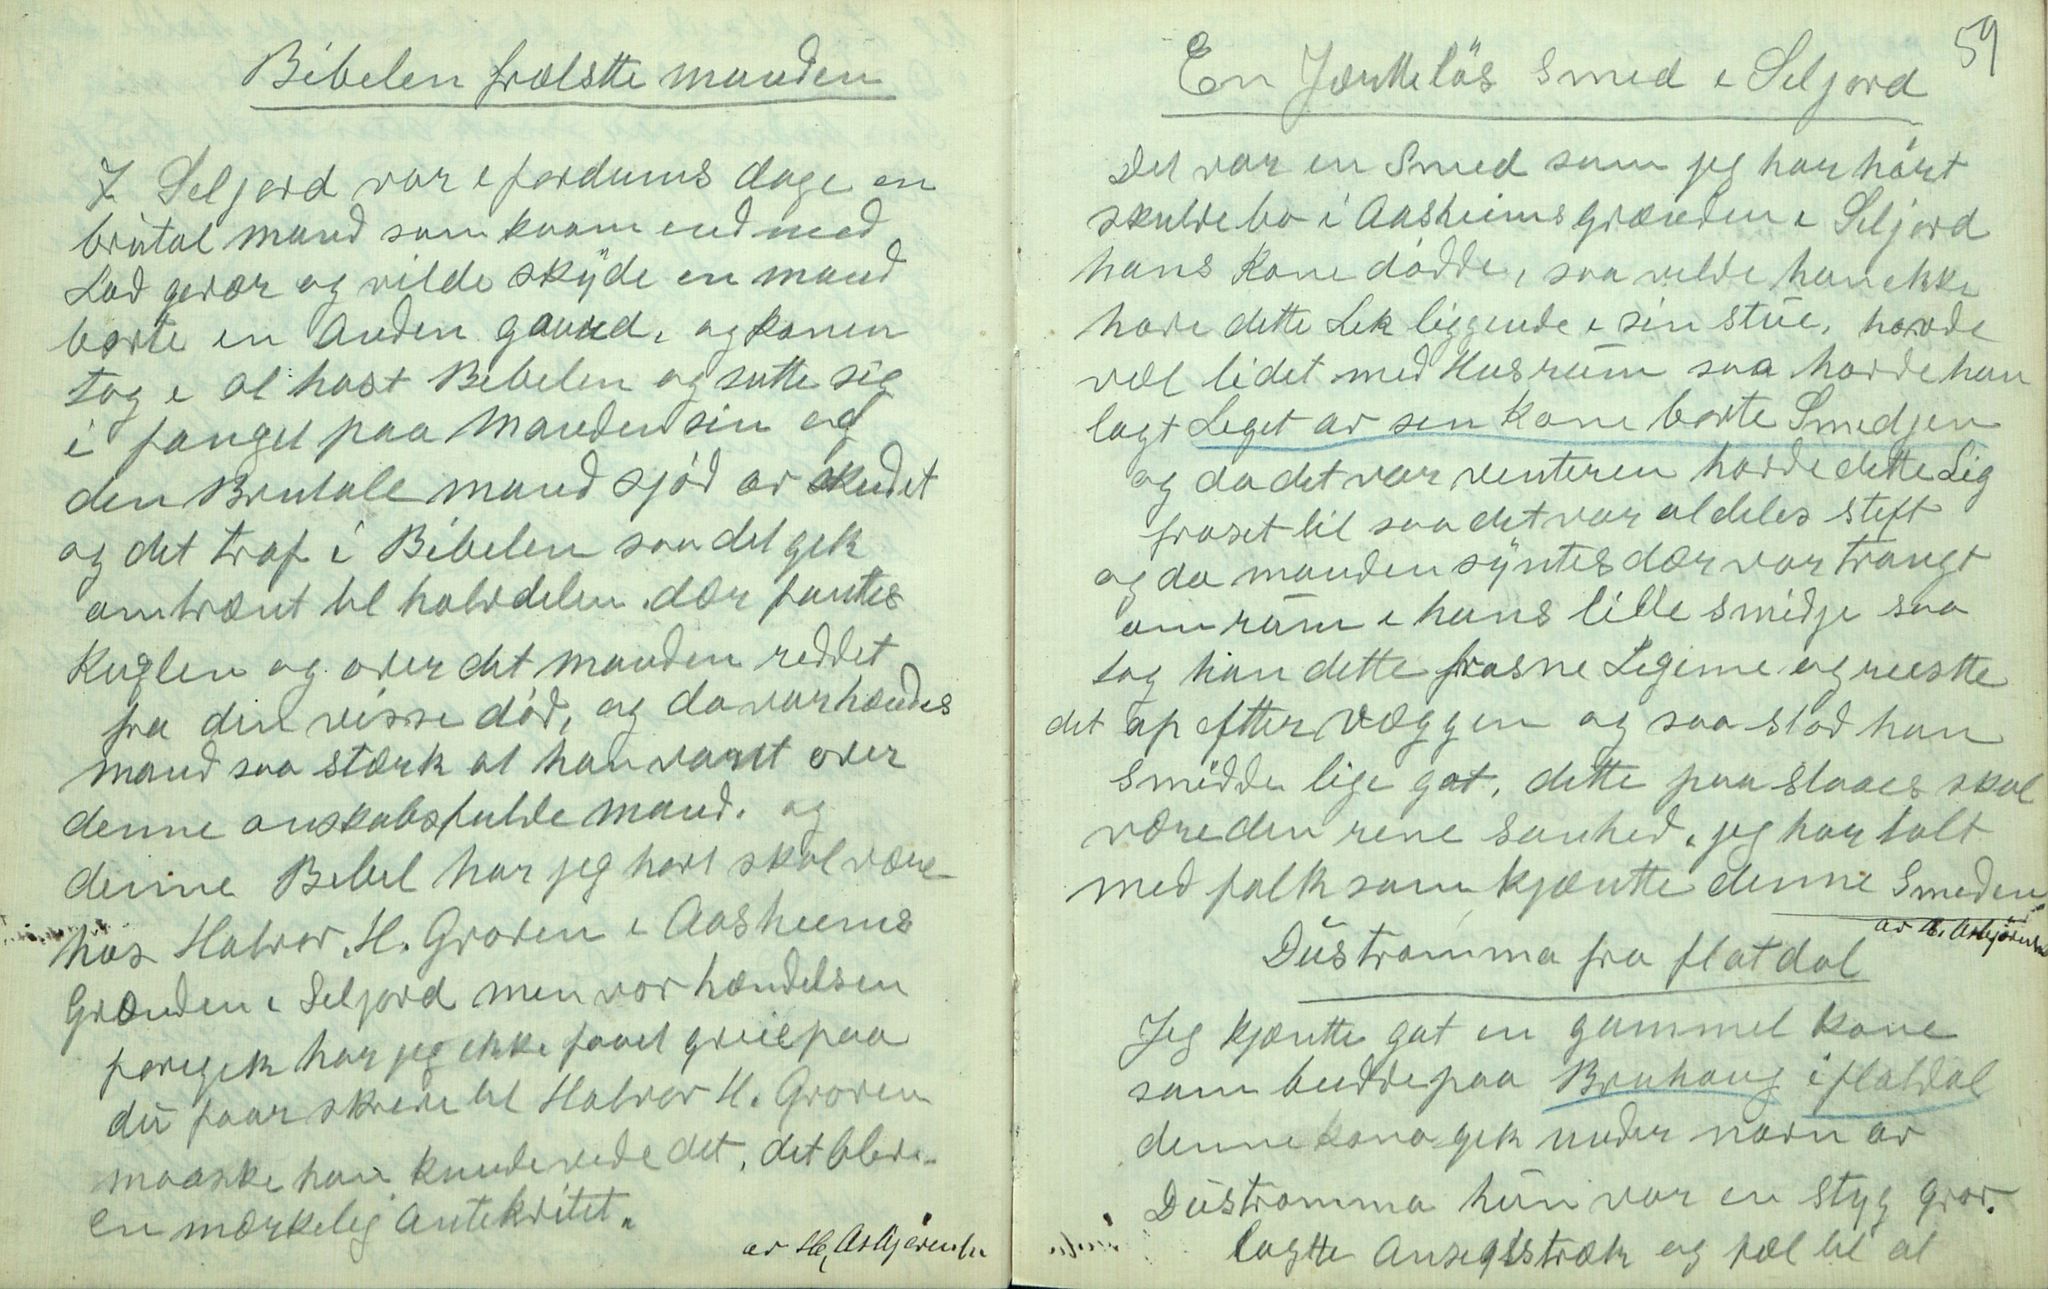 Bibelen frælstte manden
I Seljord var i fordums dage en
brutal mand som kaam end med
Lad gevær og vilde skyde en mand
borte en anden gaard, og konen
tog i al hast Bibelen og satte sig
i fanget paa Manden sin og
den Brutale mand sjød av skudet
og det traf i Bibelen saa det gik
omtrænt til halvdelen. dær fantes
Kuglen og over det manden reddet
fra den visse død, og da var hændes
mand saa stærk at han vant over
denne onskabsfulde mand. og
denne Bibel har jeg hørt skal være
hos Halvor. H. Groven i Aasheims
Grænden i Seljord men vor hændelsen
foregik har jeg ikke faaet greie paa
du faar skrive til Halvor H. Groven
maaske han kunde vide det, det blev
en mærkelig Antekvitet.
av H. Asbjørnsen
59
En Jærtteløs Smed i Seljord
Det var en Smed som jeg har hørt
skulde bo i Aasheimsgrænden i Seljord
hans Kone dødde, saa vilde han ikke
have dette Lik liggende i sin stue, havde
vel lidet med Husrum saa havde han
lagt Liget av sin Kone borte Smedjen
og da det var venteren havde dette Lig
froset til saa det var aldeles stift
og da manden syntes dær var trangt
om rum i hans lille smidje saa
tog han dette frosne Legeme og reistte
det op efter Væggen og saa stod han
smidde lige got, dette paa staaes skal
være den rene sanhed, jeg har talt
med folk som kjæntte denne Smeden.
av H. Asbjørnsen
Dustromma fra flatdal
Jeg kjæntte gat en gammel kone
som budde paa Bruhaug i flatdal
denne kona gik under navn av
Dustromma hun var en styg grov.
lagtte Ansigtstræk og fæl til at